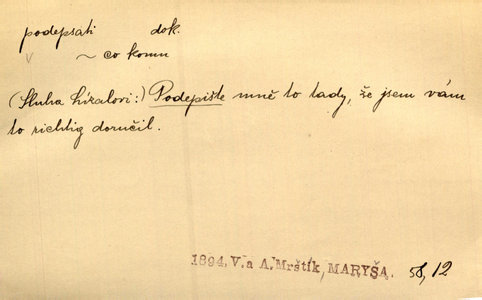 podepsati dok.
v ~ co komu
(Sluha Lízalovi:) Podepište mně to tady, že jsem vám
to richtig doručil.
1894. V. a A. Mrštík, MARYŠA. 58, 12